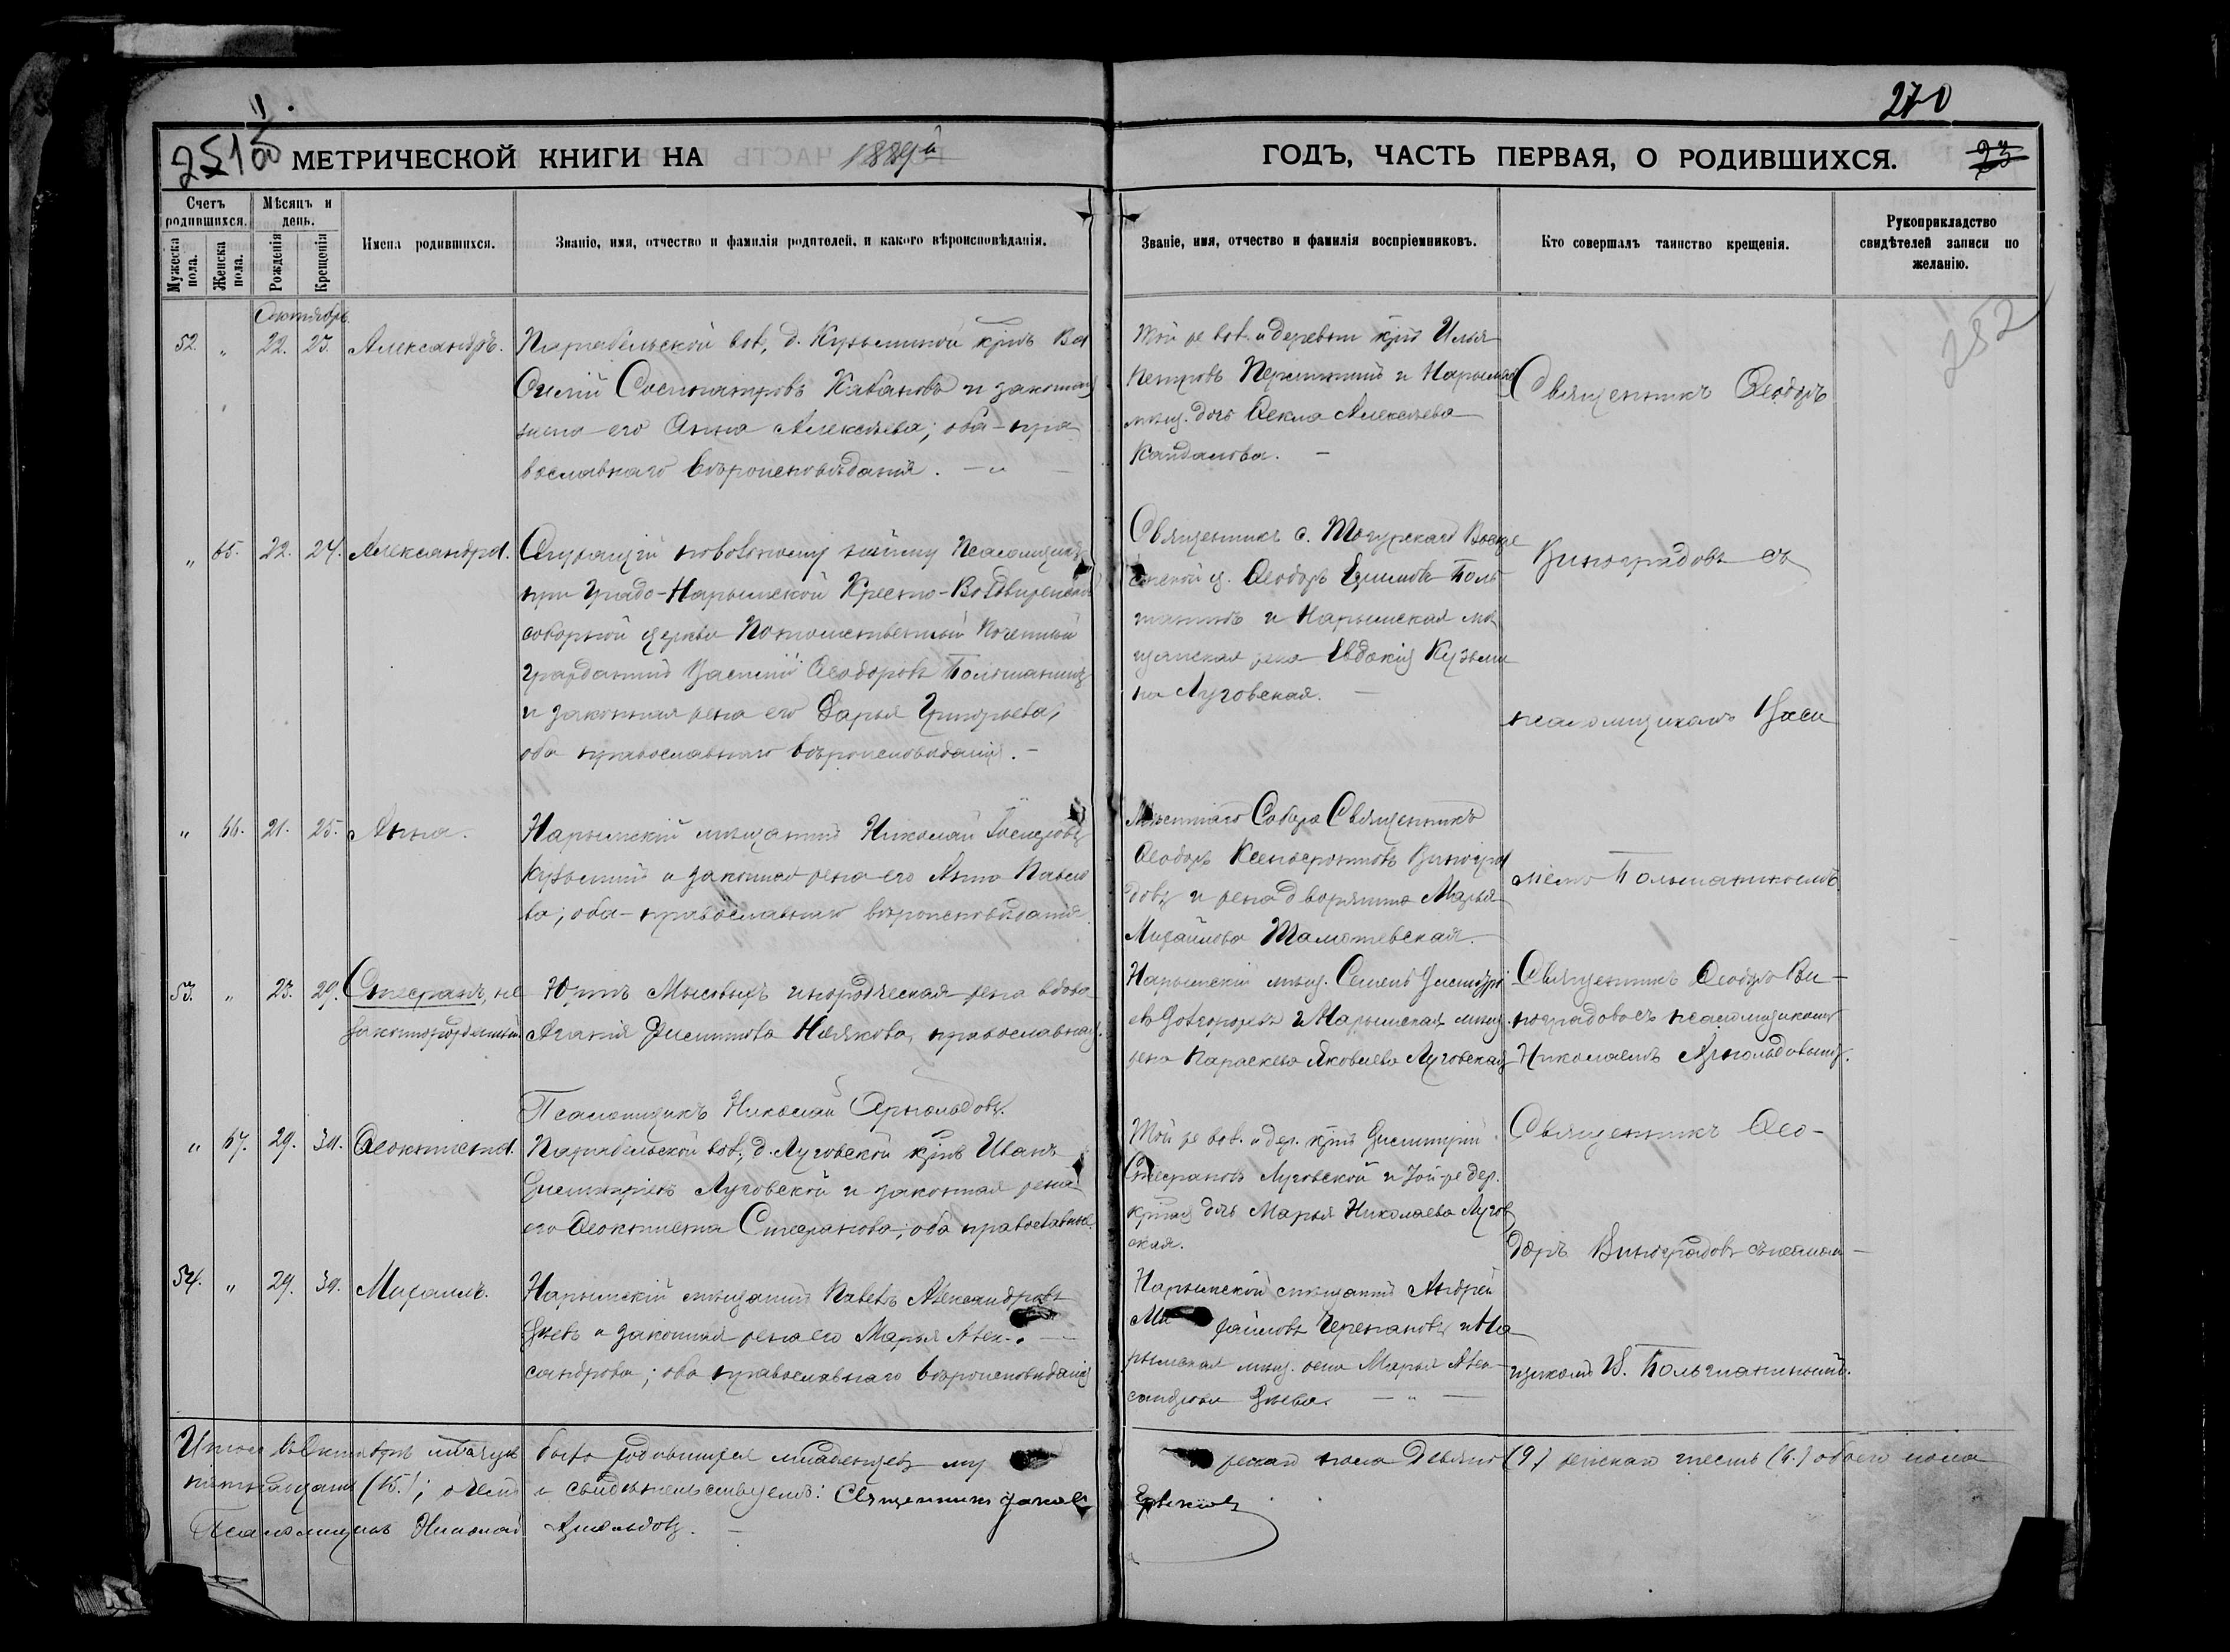 270
251
МЕТРИЧЕСКОЙ КНИГИ НА 1889й
ГОДЪ, ЧАСТЬ ПЕРВАЯ, О РОДИВШИХСЯ.
23
Счетъ родившихся.
Мужеска пола.
Женска пола.
Мѣсяцъ и день.
Рожденія
Крещенія
Имена родившихся.
Званіе, имя, отчество и фамилія родителей, и какого вѣроисповѣданія.
Званіе, имя, отчество и фамилія воспріемниковъ.
Кто совершалъ таинство крещенія.
Рукоприкладство
свидѣтелей записи по
желанію.
252
52. " 22. 23. Александръ.
Парабельской вол., д. Кузьминой крнъ Ва
силій Сосипатровъ Кабановъ и законная
жена его Анна Алексѣева; оба-пра
вославнаго вѣроисповѣданія. — " —
Той же вол. и деревни крнъ Илья
Петровъ и Нарымская
мѣщ. дочь Ѳекла Алексѣева
Кайдалова. —
Священникъ Ѳеодоръ
" 65. 22. 24. Александра.
при Градо-Нарымской Кресто-Воздвиженской
соборной церкви Потомственный Почетный
гражданинъ Василій Ѳеодоровъ Большанинъ
и законная жена его Дарья Григорьева;
оба православнаго вѣроисповѣданія. —
Священникъ с. Тогурскаго Воскре
сенской ц. Ѳеодоръ Боль
шанинъ и Нарымская мѣ
щанская жена Евдокія Кузьми
на Луговская. —
Виноградовъ съ
псаломщикомъ Васи
" 66. 21. 25. Анна.
Нарымскій мѣщанинъ Николай
Кузьминъ и законная жена его Анна Павло
ва; оба-православнаго вѣроисповѣданія
Мѣстнаго Собора Священникъ
Ѳеодоръ Ксенофонтовъ Виногра
довъ и жена дворянина Марья
Михайлова
ліемъ Большанинымъ.
53. " 23. 29. Стефанъ, не
законнорожденный
Юртъ Мысовыхъ инородческая жена вдова
православная.
Нарымскій мѣщ. Семенъ
и Нарымская мѣщ.
жена Параскева Яковлева Луговская
Священникъ Ѳеодоръ Ви-
ноградовъ съ псаломщикомъ
Николаемъ Арнольдовымъ.
Псаломщикъ Николай Арнольдовъ.
" 67. 29. 30. Ѳеоктиста.
Парабельской вол., д. Луговской крнъ Иванъ
Дмитріевъ Луговской и законная жена
его Ѳеоктиста Стефанова; оба православные.
Той же вол. и дер. крнъ Димитрій
Стефановъ Луговской и той же дер.
дочь Марья Николаева Лугов
ская.
Священникъ Ѳео-
доръ Виноградовъ съ псалом-
54. " 29. 30. Михаилъ.
Нарымскій мѣщанинъ Павелъ Александровъ
и законная жена его Марья Алек-
сандрова; оба православнаго вѣроисповѣданія
Нарымской мѣщанинъ Андрей
Михайловъ Черепановъ и На
рымская мѣщ. жена Марья Алек-
сандрова
щикомъ В. Большанинымъ.
Итого въ Октябрѣ мѣсяцѣ было родившихся младенцевъ му жеска пола девять (9.) женскаго шесть (6.) обоего пола
пятнадцать (15.); о чемъ и свидѣтельствуемъ: Священникъ
Псаломщикъ Николай Арнольдовъ. —